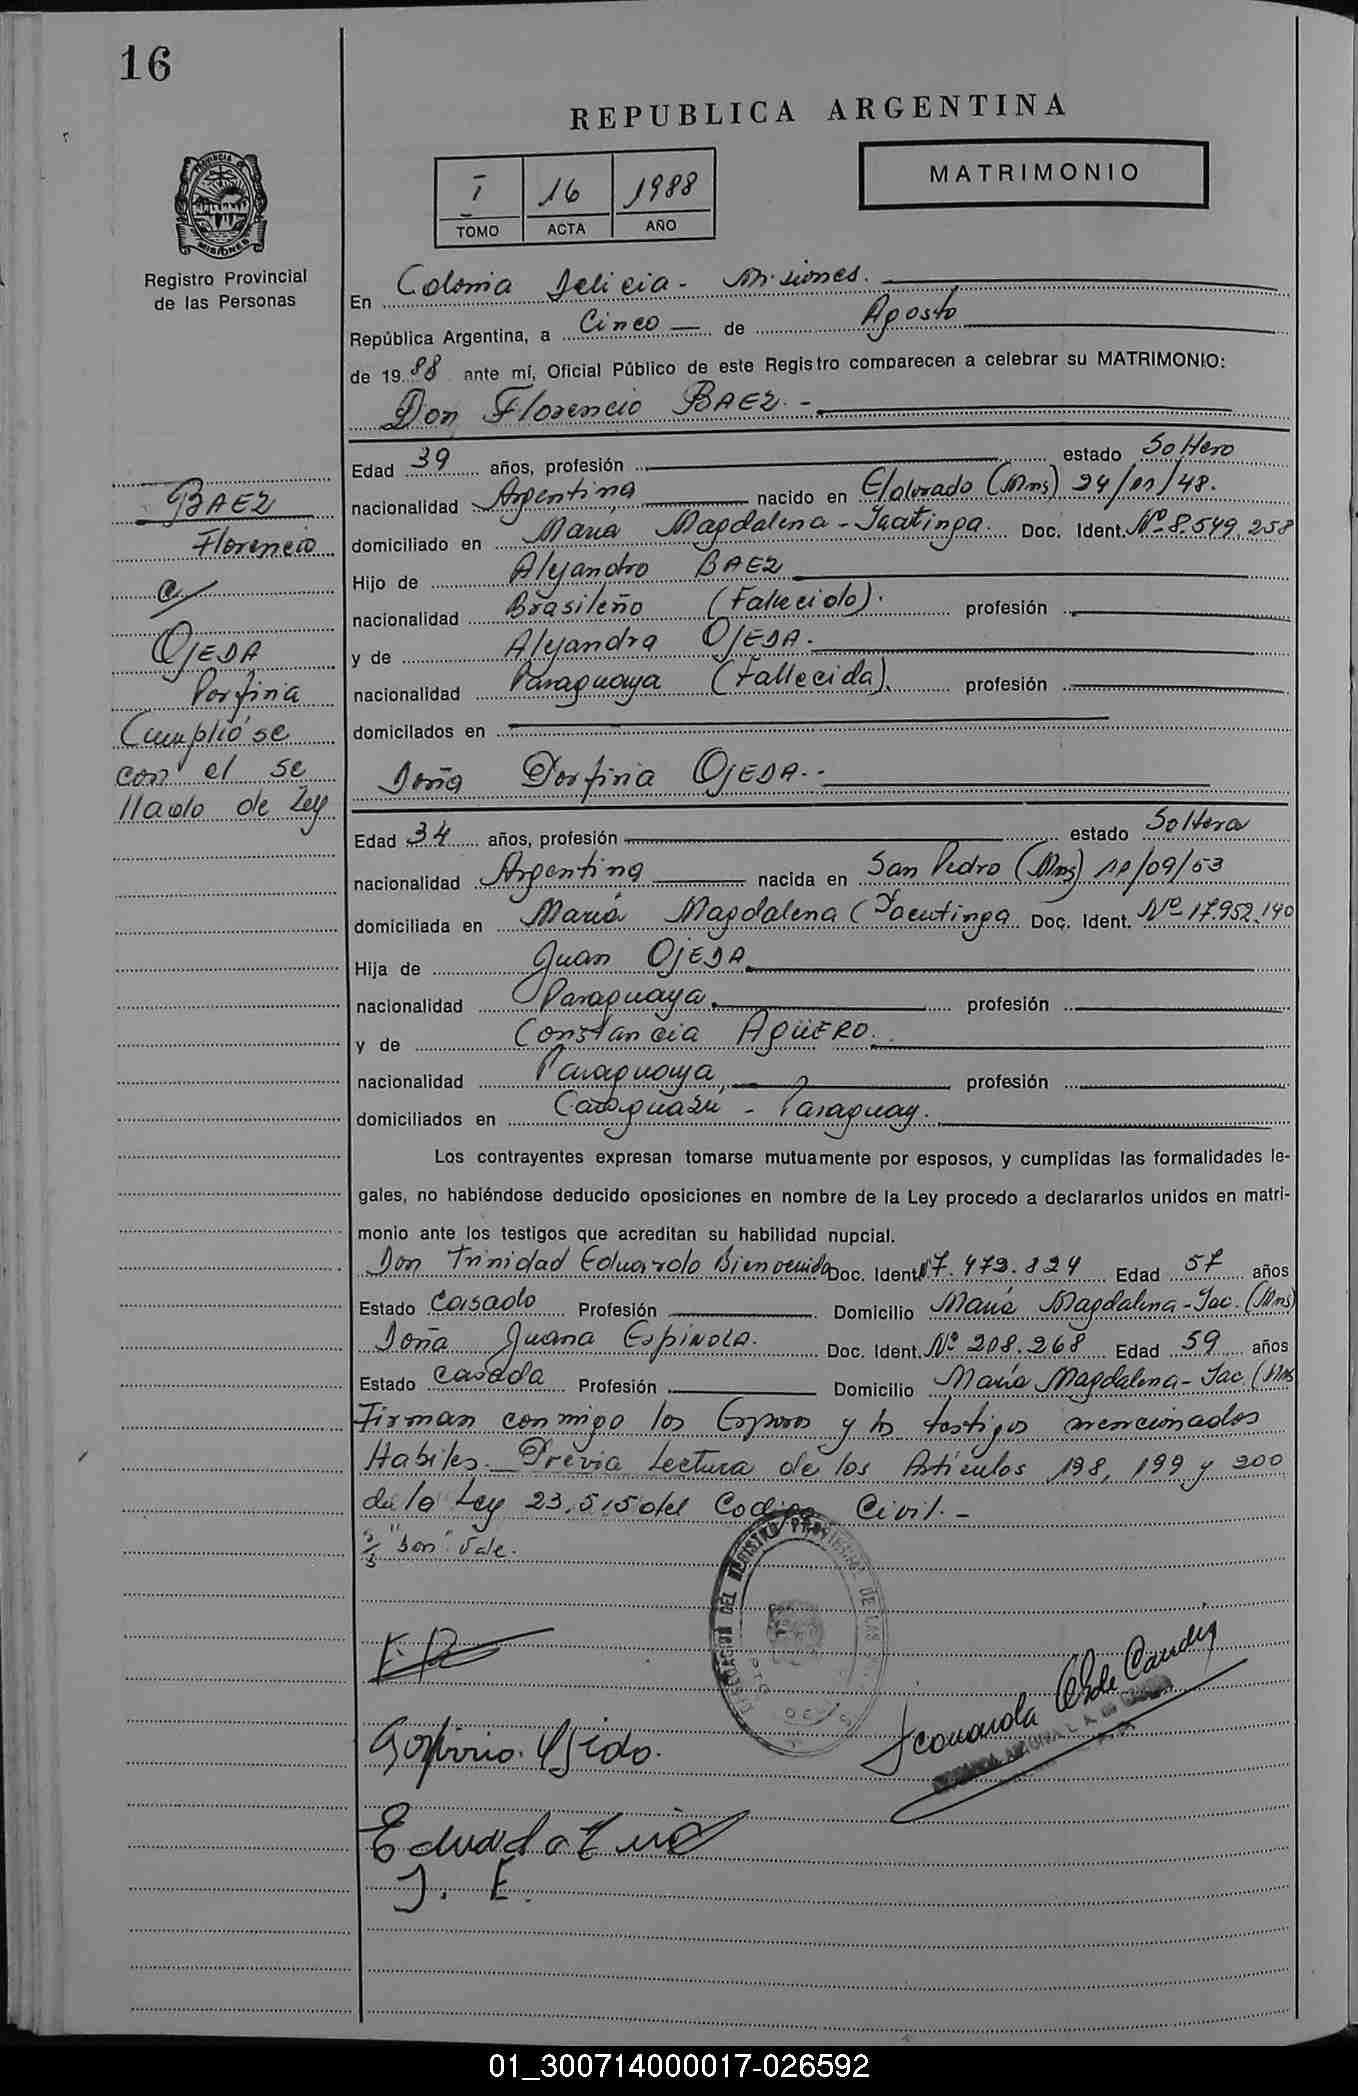 16
REPUBLICA ARGENTINA
MATRIMONIO
I 16 1988
TOMO ACTA AÑO
PROVINCIA DE
MISIONES
Registro Provincial
de las Personas
En Colonia Delicia - Misiones.
República Argentina, a Cinco de Agosto
de 1988 ante mí, Oficial Público de este Registro comparecen a celebrar su MATRIMONIO:
Don Florencio BAEZ. -
Edad 39 años, profesión estado Soltero
nacionalidad Argentina nacido en Eldorado (Mns) 24/11/48.
domiciliado en María Magdalena - Yacutinga. Doc. Ident. Nº 8.549.258
Hijo de Alejandro BAEZ
nacionalidad Brasileño (Fallecido). profesión
y de Alejandra OJEDA.
nacionalidad Paraguaya (Fallecida). profesión
domicilados en
Doña Porfiria OJEDA. -
Edad 34 años, profesión estado Soltera
nacionalidad Argentina nacida en San Pedro (Mns) 11/09/53
domiciliada en María Magdalena (Yacutinga Doc. Ident. Nº 17.952.140
Hija de Juan OJEDA
nacionalidad Paraguaya. profesión
y de Constancia AGÜERO.
nacionalidad Paraguaya, profesión
domiciliados en Caaguazú - Paraguay.
Los contrayentes expresan tomarse mutuamente por esposos, y cumplidas las formalidades le-
gales, no habiéndose deducido oposiciones en nombre de la Ley procedo a declararlos unidos en matri-
monio ante los testigos que acreditan su habilidad nupcial.
Don Trinidad Eduardo Bienvenido Doc. Ident. 7.473.824 Edad 57 años
Estado Casado Profesión Domicilio María Magdalena - Yac. (Mns)
Doña Juana ESPINOLA. Doc. Ident. Nº 208.268 Edad 59 años
Estado Casada Profesión Domicilio María Magdalena - Yac. (Mns
Firman conmigo los Esposos y los testigos mencionados
Habiles. Previa Lectura de los Artículos 198, 199 y 200
de la Ley 23.515 del Codigo Civil. -
"Son" Vale.
BAEZ
Florencio
c/
OJEDA
Porfiria
Cumplióse
con el se
llado de Ley
DEL REGISTRO PROVINCIAL DE LAS
F. B.
Porfiria Ojeda.
Eduardo
J. E.
01_300714000017-026592